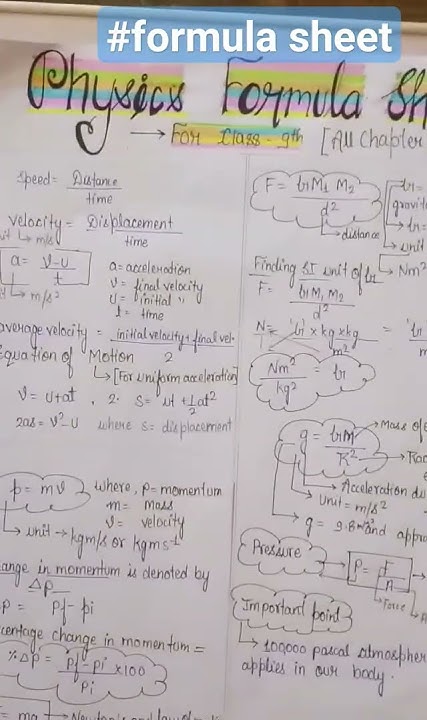 #formula sheet
Physics Formula Sh
→ For Class - 9th [All Chapter
speed = Distance
time
velocity = Displacement
time
→ m/s
a = v-u
t
a = acceleration
v = final velocity
u = initial "
t = time
→ m/s²
average velocity = initial velocity + final vel.
2
Equation of Motion
→ [For uniform acceleration]
v = u+at , 2. s = ut + 1/2 at²
2as = v²-u where s = displacement
p = mv where, p = momentum
m = mass
v = velocity
→ unit → kgm/s or kgms⁻¹
ange in momentum is denoted by
Δp
p = pf - pi
centage change in momentum =
% Δp = pf - pi x100
pi
= ma →
F = G M₁ M₂
d²
→ distance
G =
gravit
G =
unit
Finding SI unit of G → Nm²
F = G M₁ M₂
d²
N = G x kg x kg
m²
Nm² = G
kg²
g = GM
R²
→ Mass of
→ Ra
→ Acceleration du
→ Unit = m/s²
→ g = 9.8 m/s² and appro
Pressure → P = F
A
Force
Important point
→ 100000 pascal atmospher
applies in our body.